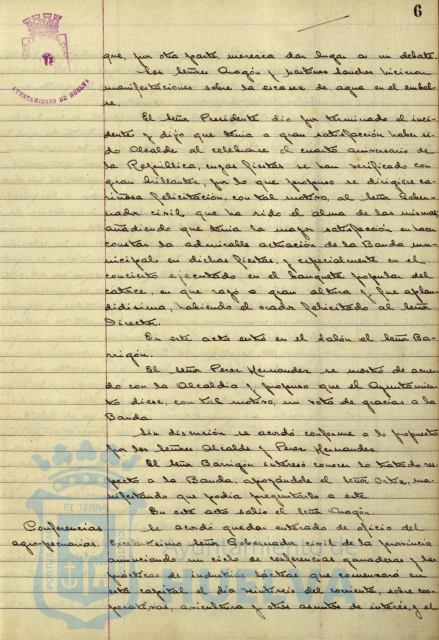 6
AYUNTAMIENTO DE HUELVA
que, por otra parte, merezca dar lugar a un debate.
Los Señores Aragón y Martinez Sanchez hicieron
manifestaciones sobre la escasez de agua en el embal-
se.
El Señor Presidente dio por terminado el inci-
dente y dijo que tenia a gran satisfacción haber si-
do Alcalde al celebrarse el cuarto aniversario de
la República, cuyas fiestas se han verificado con
gran brillantez, por lo que propuso se dirigiese ca-
riñosa felicitación, con tal motivo, al Señor Gober-
nador civil que ha sido el alma de las mismas,
añadiendo que tenia la mayor satisfacción en hacer
constar la admirable actuación de la Banda mu-
nicipal en dichas fiestas, y especialmente en el
concierto ejecutado en el banquete popular del
catorce, en que rayó a gran altura y fue aplau-
didisima, habiendo el orador felicitado al Señor
Director.
En este acto entró en el Salón el Señor Ba-
rrigón.
El Señor Perez Hernandez se mostró de acuer-
do con la Alcaldia y propuso que el Ayuntamien-
to diese, con tal motivo, un voto de gracias a la
Banda
Sin discusión se acordó conforme a lo propuesto
por los Señores Alcalde y Perez Hernandez.
El Señor Barrigón interesó conocer lo tratado res-
pecto a la Banda, apoyandole el Señor Ortiz, ma-
nifestando que podia preguntarlo a este.
En este acto salió el Señor Aragón.
Conferencias
agropecuarias.
Se acordó quedar enterado de oficio del
Excelentisimo Señor Gobernador civil de la provincia
anunciando un ciclo de conferencias ganaderas y las
prácticas de industrias lácteas que comenzará en
esta capital el dia veintiseis del corriente, sobre coo-
perativas, avicultura y otros asuntos de interés, y el
Ayuntamiento de
HUELVA